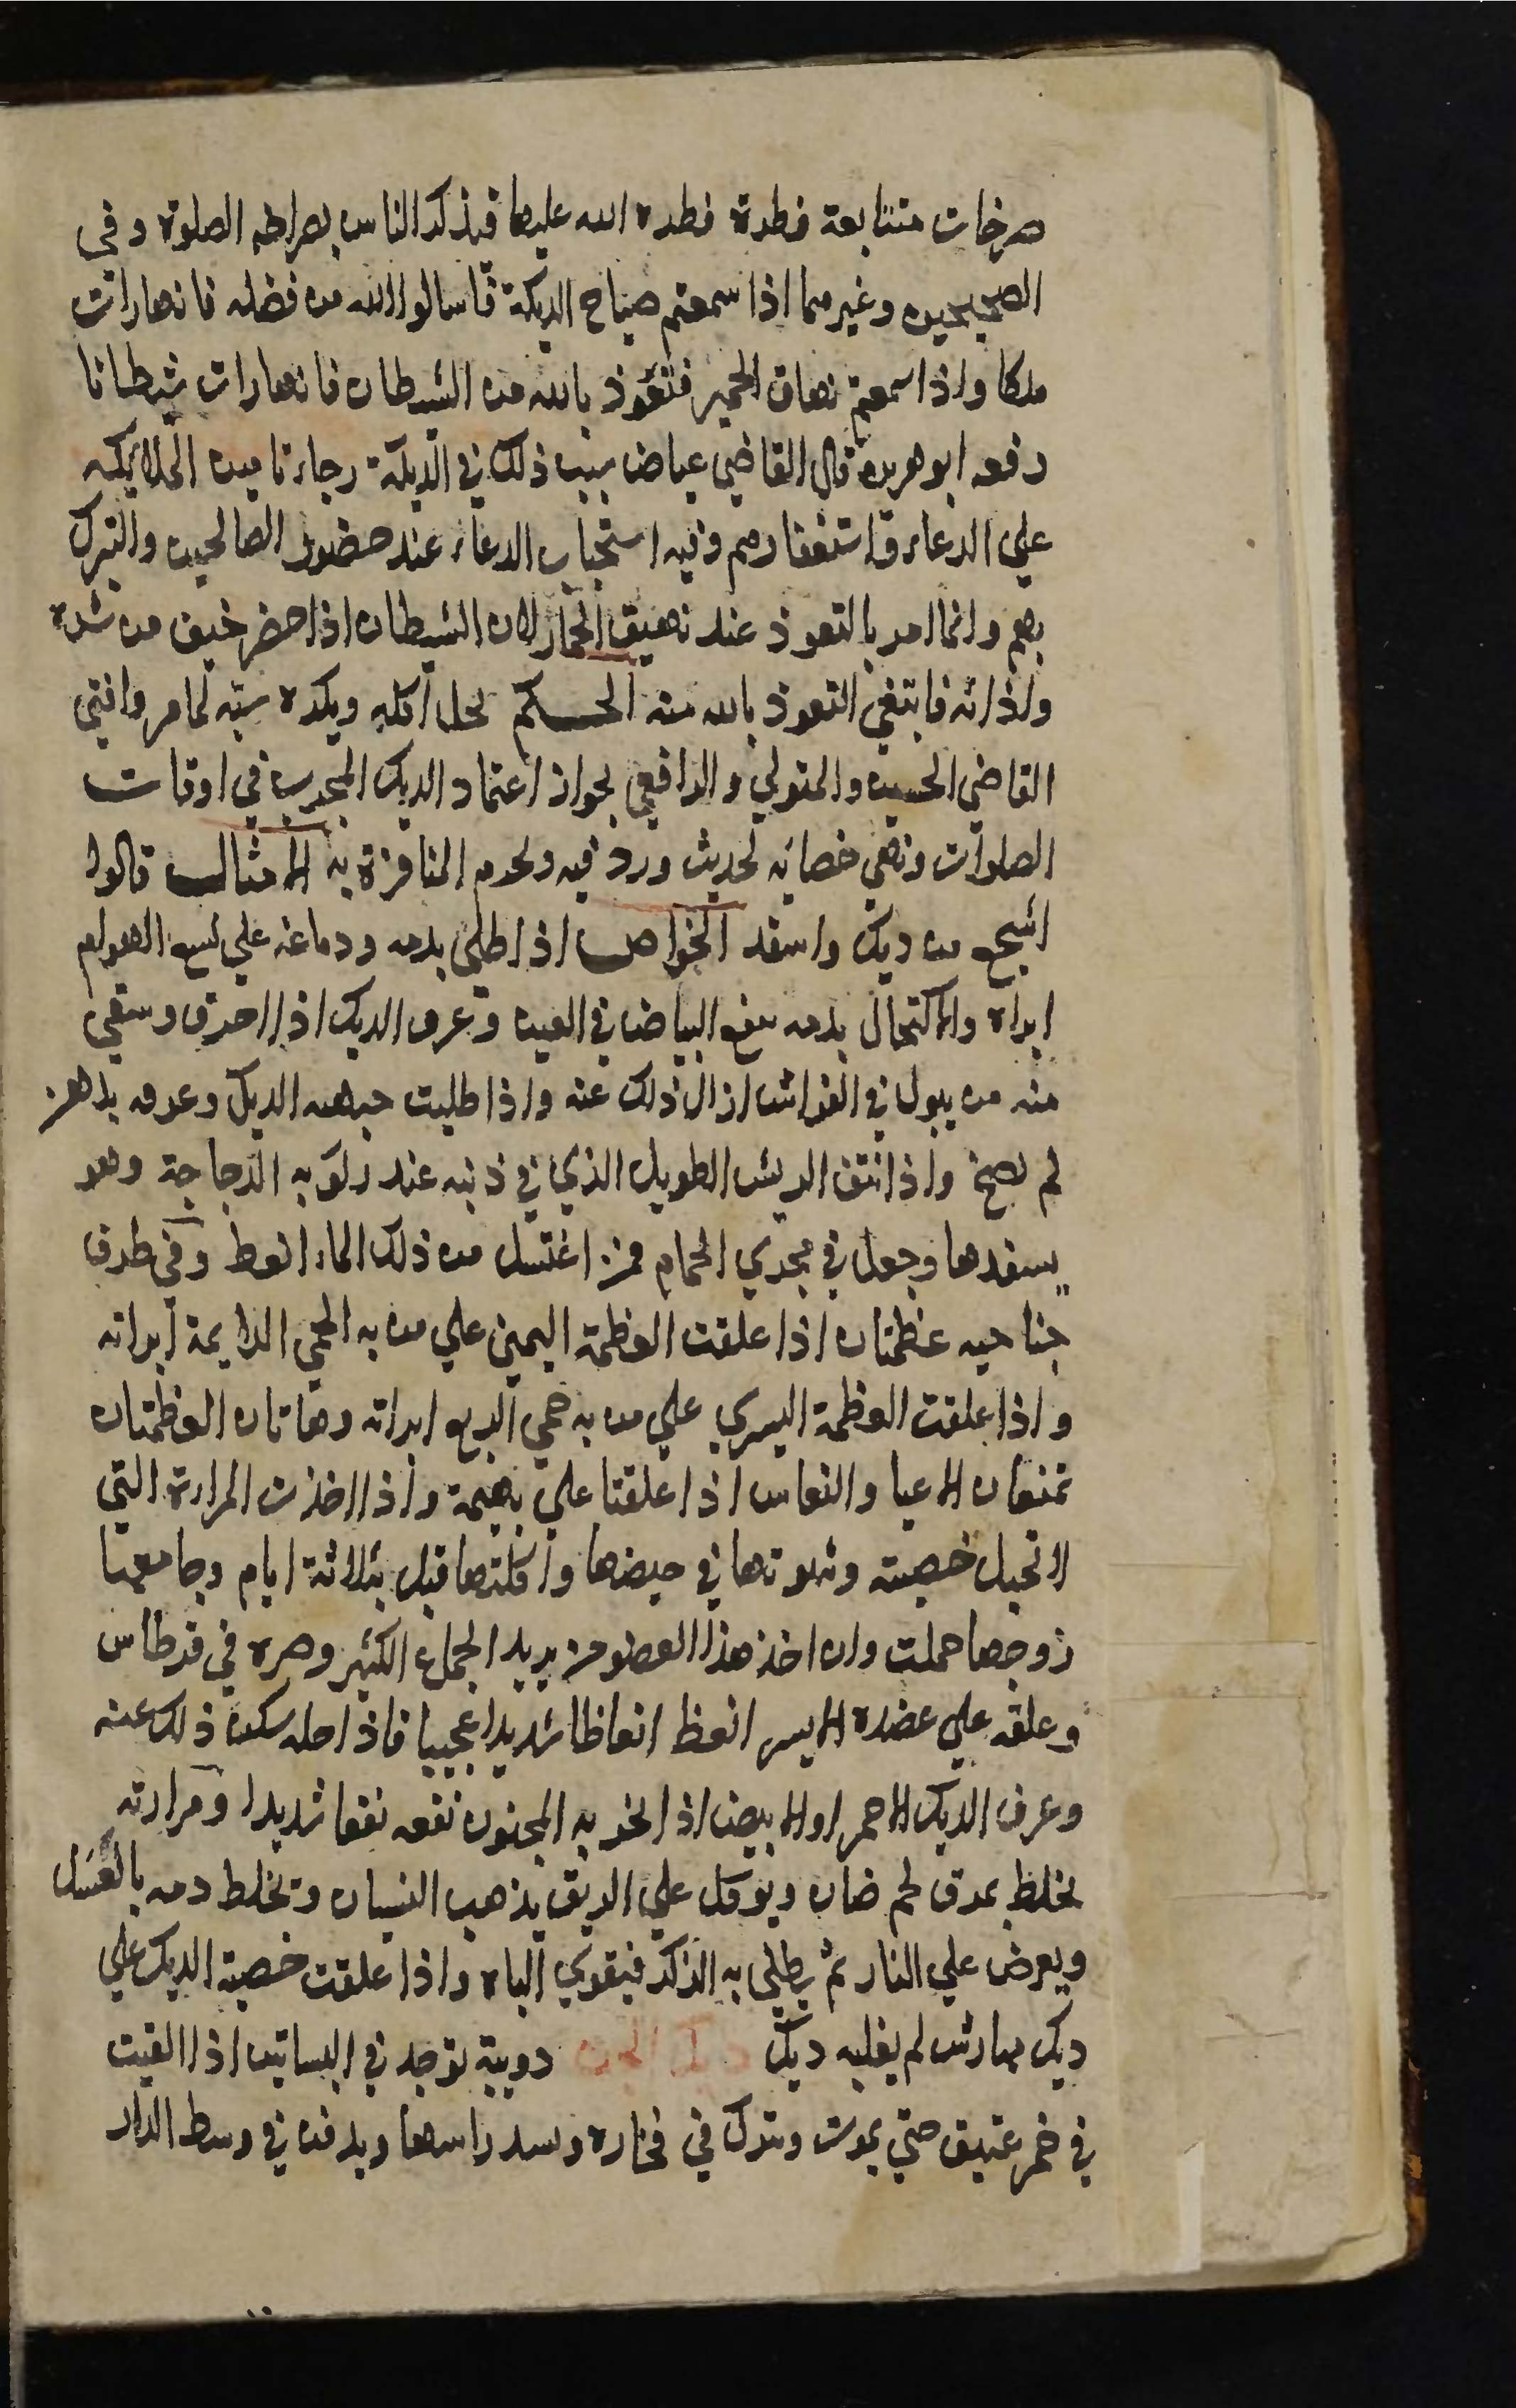 صرخات متتابعة فطرة فطره الله عليها فيذكر الناس بصراخه الصلوة وفي
الصحيحين وغيرهما اذا سمعتم صياح الديكة فاسالوا الله من فضله فانها رات
ملكا واذا سمعتم نهاق الحمير فتعوذ بالله من الشيطان فانها رات شيطانا
رفعه ابو هريره قال القاضي عياض سبب ذلك في الديكة رجاء تامين الملائكه
علي الدعاء واستغفارهم وفيه استحباب الدعاء عند حضور الصالحين والتبرك
بهم وانما امر بالتعوذ عند نهيق الحمار لان الشيطان اذا حضر خيف من شره
ولذاته فابتغي التعوذ بالله منه الحكم يحل اكله ويكره سبه لما مر وافتي
القاضي الحسين والمتولي والرافعي بجواز اعتماد الديك المجرب في اوقات
الصلوات ونهي خصائه لحديث ورد فيه ويحرم المناقرة به الامثال قالوا
اشجع من ديك واسفد الخواص اذا طلي بدمه ودماغه علي لسع الهوام
ابراه والاكتحال بدمه ينفع البياض في العين وعرف الديك اذا احرق وسقي
منه من يبول في الفراش ازال ذلك عنه واذا طليت جبهه الديك وعرفه بدهن
لم يصح واذا نتف الريش الطويل الذي في ذنبه عند ركوبه الدجاجة وهو
يسفدها وجعل في مجري الحمام فمن اغتسل من ذلك الماء انعظ وفي طرف
جناحيه عظمتان اذا علقت العظمة اليمين علي من به الحمي الدايمة ابراته
واذا علقت العظمة اليسري علي من به حمي الربع ابراته وهاتان العظمتان
تمنعان الاعيا والنعاس اذا علقتا علي بهيمة واذا اخذت المرارة التي
لا تحبل خصيته وشوتها في حيضها واكلتها قبل بثلاثة ايام وجامعها
زوجها حملت وان اخذ هذا العضو من يريد الجماع الكثير وصره في قرطاس
وعلقه علي عضده الايسر انعظ انعاظا شديدا عجيبا فاذا حله سكن ذلك عنه
وعرف الديك الاحمر او الابيض اذا بخر به المجنون نفعه نفعا شديدا ومرارته
تخلط بمرق لحم ضان ويوكل علي الريق يذهب النسيان وتخلط دمه بالعسل
ويعرض علي النار ثم يطلي به الذكر فيقوي الباه واذا علقت خصية الديك علي
ديك مهارش لم يغلبه ديك ديك الجن دويبة توجد في البساتين اذا القيت
في خمر عتيق حتي يموت وتترك في فخاره وسد راسها ويدفن في وسط الدار